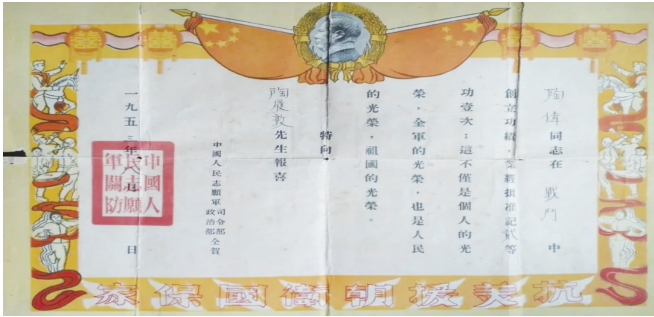 陶偉同志在 戰鬥 中
創立功績，業經批准記貳等
功壹次；這不僅是個人的光
榮，全軍的光榮，也是人民
的光榮，祖國的光榮。
特向
陶 敦先生報喜
中國人民志願軍
司令部
政治部
全賀
一九五三年 日
中國人
民志願
軍關防
抗美援朝衛國保家